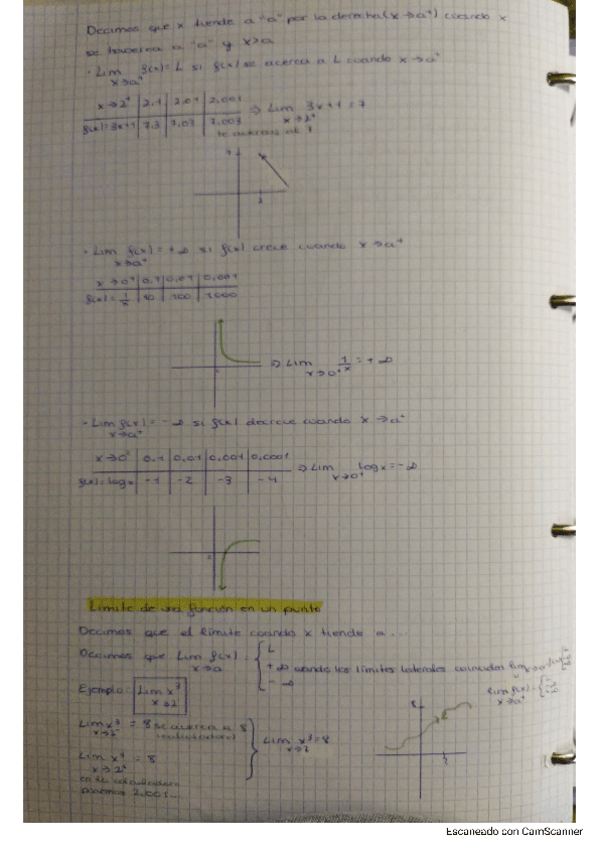 Decimos que x tiende a "a" por la derecha (x→a⁺) cuando x
se acerca a "a" y x>a
· Lim f(x) = L si f(x) se acerca a L cuando x→a⁺
x→a⁺
x→2⁺ | 2,1 | 2,01 | 2,001 ⇒ Lim 3x+1 = 7
f(x)=3x+1 | 7,3 | 7,03 | 7,003 x→2⁺
te acercas al 7
· Lim f(x) = +∞ si f(x) crece cuando x→a⁺
x→a⁺
x→0⁺ | 0,1 | 0,01 | 0,001
f(x)=1/x | 10 | 100 | 1000
⇒ Lim 1/x = +∞
x→0⁺
· Lim f(x) = -∞ si f(x) decrece cuando x→a⁺
x→a⁺
x→0⁺ | 0,1 | 0,01 | 0,001 | 0,0001 ⇒ Lim log x = -∞
f(x)=log x | -1 | -2 | -3 | -4 x→0⁺
Límite de una función en un punto
Decimos que el límite cuando x tiende a...
Decimos que Lim f(x) = { L
x→a
+∞ cuando los límites laterales coinciden
-∞
Ejemplo: Lim x³
x→2
Lim x³ = 8 se acerca a 8
x→2⁻
Lim x³ = 8
x→2
Lim = 8
x→2⁺
en la calculadora
ponemos 2,001...
Escaneado con CamScanner